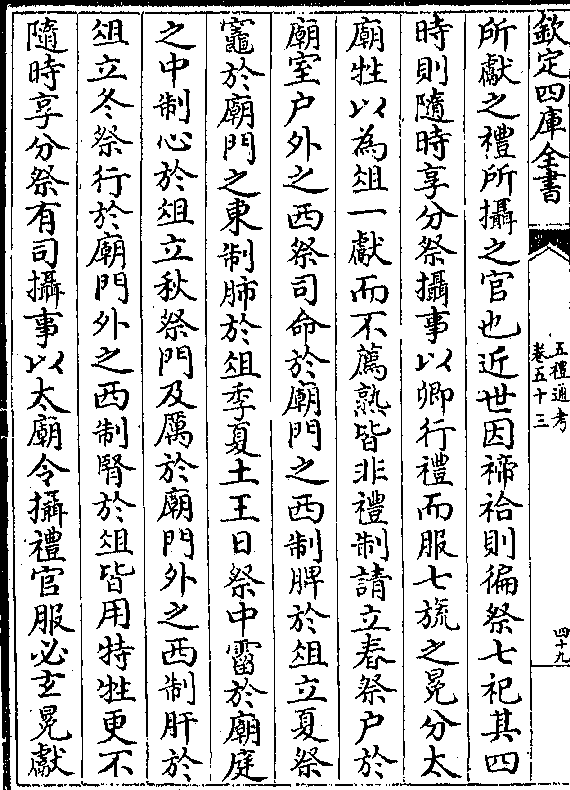 欽定四庫全書
五禮通考
卷五十三
四十九
所獻之禮所攝之官也近世因禘祫則徧祭七祀其四
時則隨時享分祭攝事以卿行禮而服七旒之冕分太
廟牲以為俎一獻而不薦熟皆非禮制請立春祭户於
廟室户外之西祭司命於廟門之西制脾於俎立夏祭
竈於廟門之東制肺於俎季夏土王日祭中霤於廟庭
之中制心於俎立秋祭門及厲於廟門外之西制肝於
俎立冬祭行於廟門外之西制腎於俎皆用特牲更不
隨時享分祭有司攝事以太廟令攝禮官服必玄冕獻